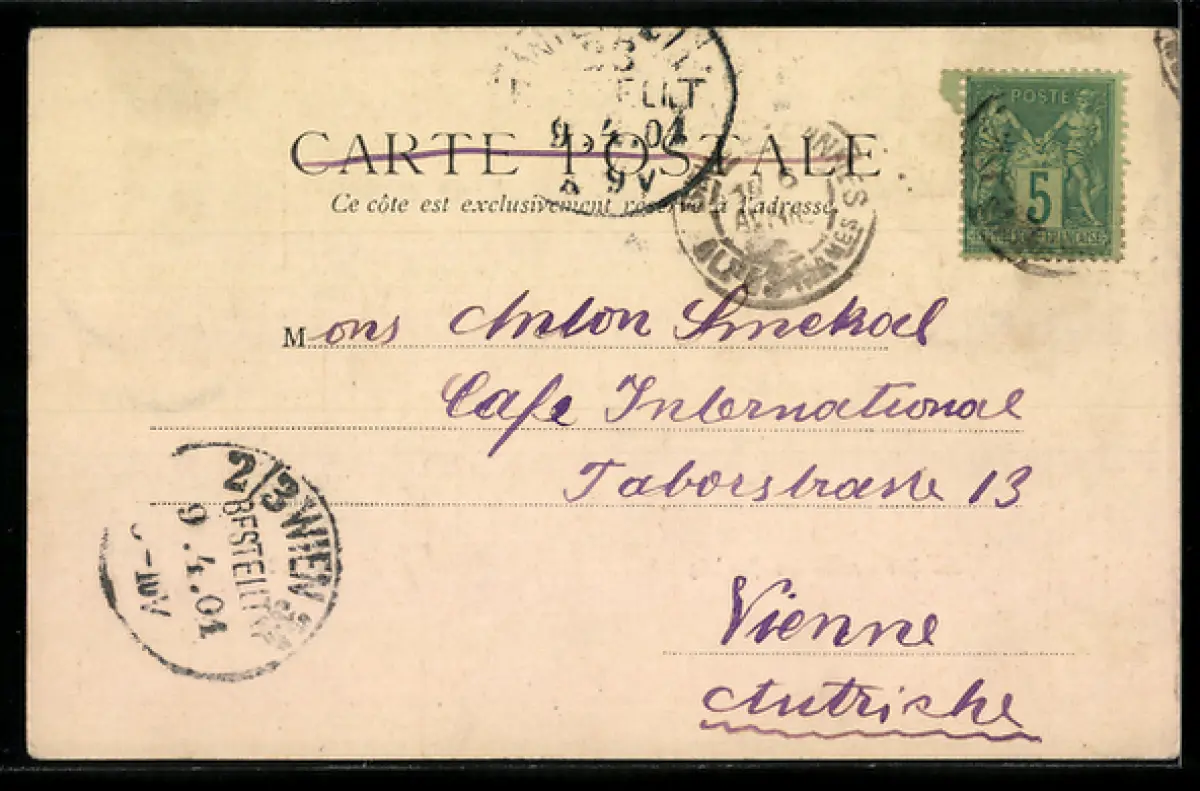 CARTE POSTALE
Ce côte est exclusivement réservé à l'adresse.
9.4.01
9V
ALPES MARITIMES
POSTE
5
Mons Anton Smekal
Cafe International
Taborstrasse 13
Vienne
Autriche
2/3 WIEN
BESTELLT
9.4.01